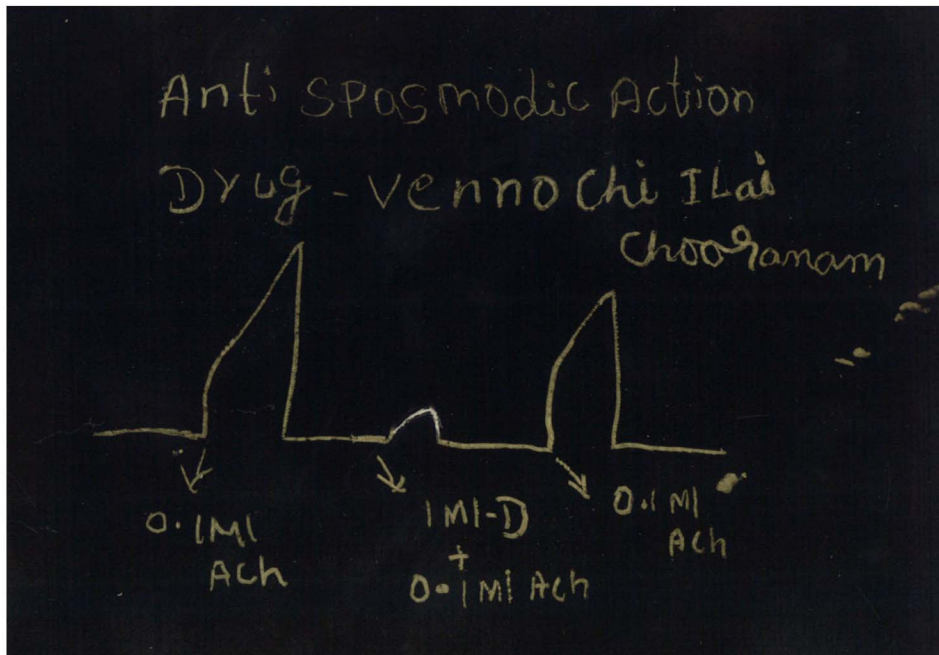 Anti Spasmodic Action
Drug - Vennochi ILai
Chooranam
0.1Ml
Ach
1Ml-D
+
0.1Ml Ach
0.1Ml
Ach